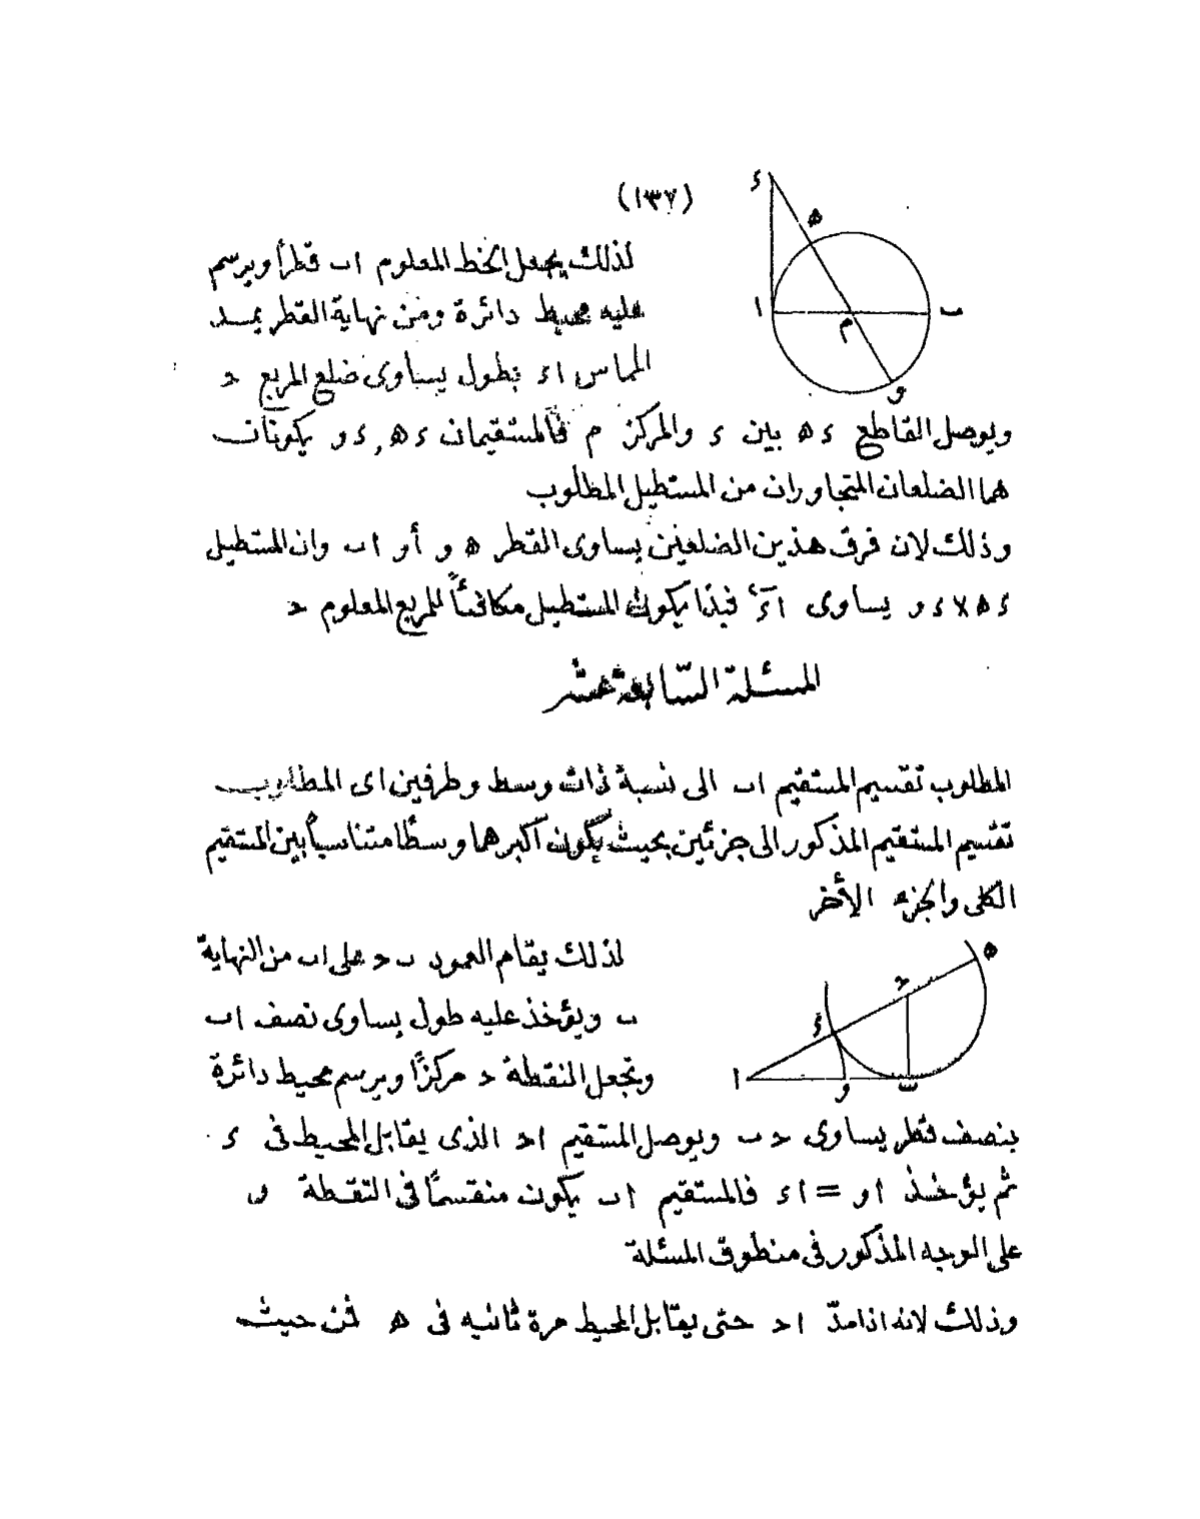 (١٣٧)
لذلك يجعل الخط المعلوم اب قطرا ويرسم
عليه محيط دائرة ومن نهاية القطر يمد
المماس اء بطول يساوى ضلع المربع حـ
ويوصل القاطع ءه بين ء والمركز م فالمستقيمان ءه , ءو يكونان
هما الضلعان المتجاوران من المستطيل المطلوب
وذلك لان فرق هذين الضلعين يساوى القطر ه و أو اب وان المستطيل
ءه×ءو يساوى اءَ٢ فبذا يكون المستطيل مكافئاً للمربع المعلوم حـ
المسئلة السّابعة عشر
المطلوب تقسيم المستقيم اب الى نسبة ذات وسط وطرفين اى المطلوب
تقسيم المستقيم المذكور الى جزئين بحيث يكون أكبرهما وسطًا متناسباً بين المستقيم
الكلى والجزء الأخر
لذلك يقام العمود ب حـ على اب من النهاية
ب ويؤخذ عليه طول يساوى نصف اب
وتجعل النقطة حـ مركزًا ويرسم محيط دائرة
بنصف قطر يساوى حـ ب ويوصل المستقيم احـ الذى يقابل المحيط فى ء
ثم يؤخذ او = اء فالمستقيم اب يكون منقسمًا فى النقطة و
على الوجه المذكور فى منطوق المسئلة
وذلك لانه اذا مدّ احـ حتى يقابل المحيط مرة ثانيه فى ه فمن حيث
ء
ه
ا
م
ب
و
ه
حـ
ء
ا
و
ب